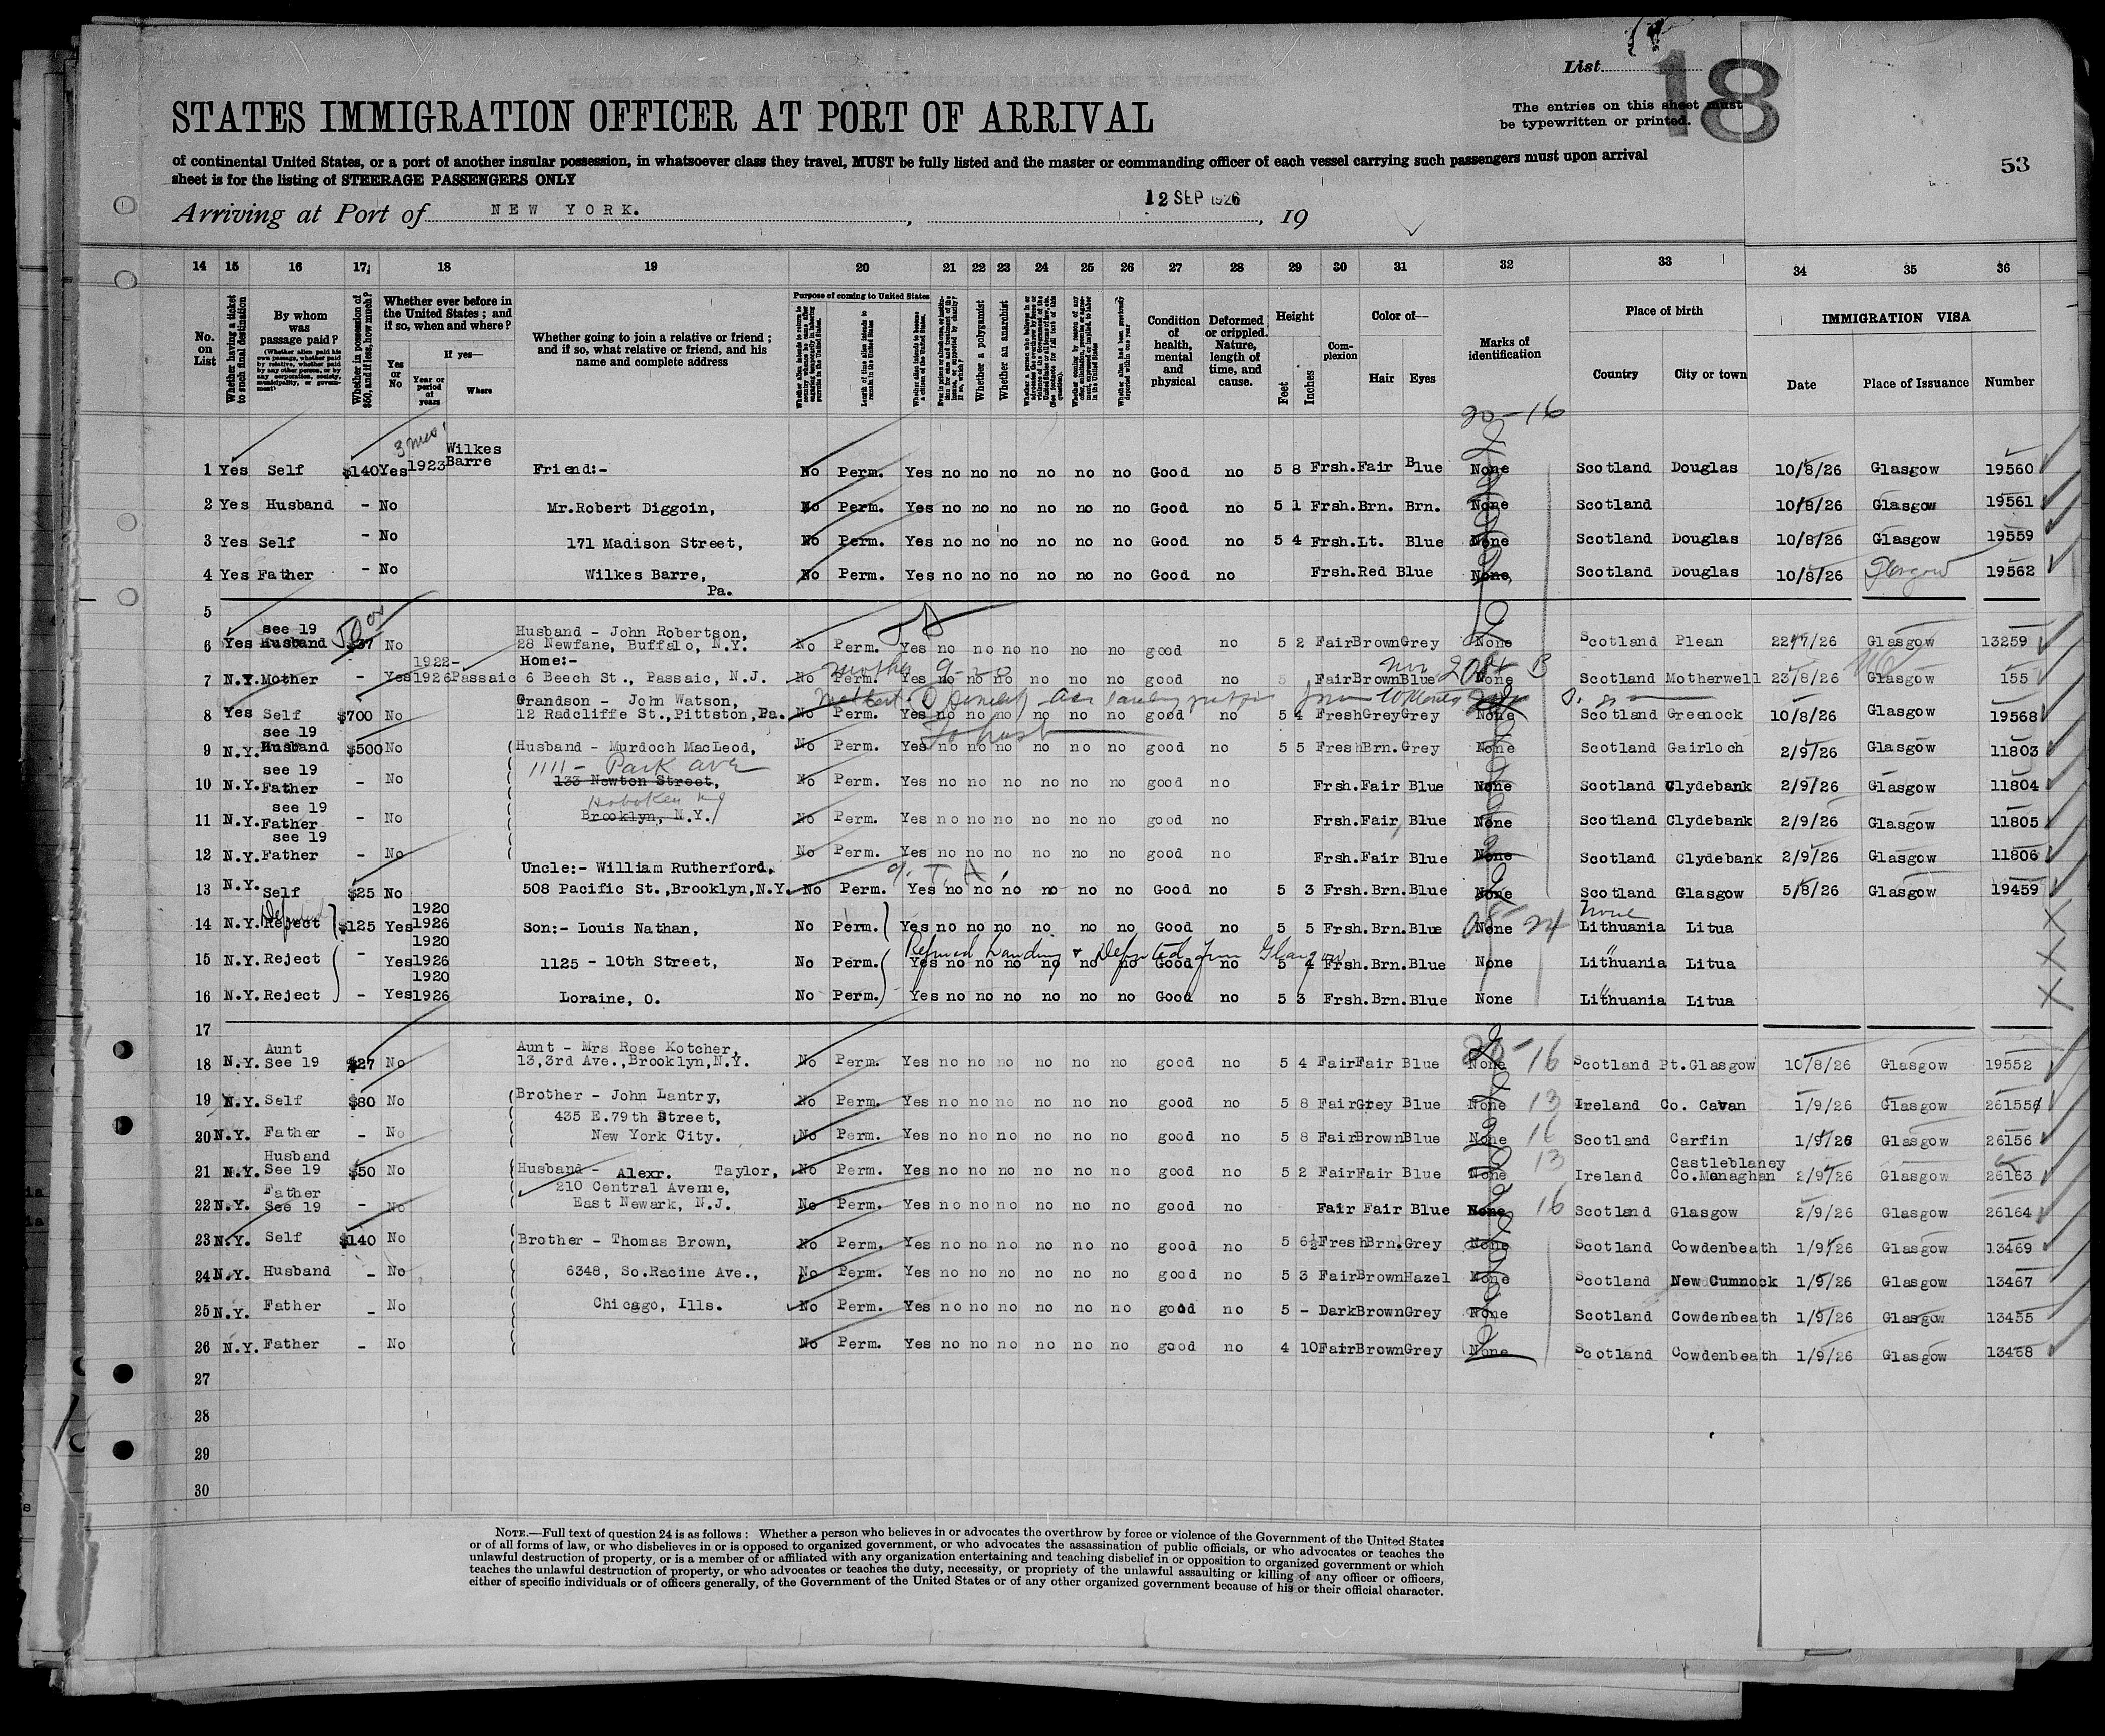 List
18
The entries on this sheet must
be typewritten or printed.
53
STATES IMMIGRATION OFFICER AT PORT OF ARRIVAL
of continental United States, or a port of another insular possession, in whatsoever class they travel, MUST be fully listed and the master or commanding officer of each vessel carrying such passengers must upon arrival
sheet is for the listing of STEERAGE PASSENGERS ONLY
Arriving at Port of NEW YORK. , 12 SEP 1926, 19
14 15 16 17 18 19 20 21 22 23 24 25 26 27 28 29 30 31 32 33 34 35 36
No. on List
Whether having a ticket to such final destination
By whom was passage paid?
(Whether alien paid his own passage, whether paid by relative, whether paid by any other person, or by any corporation, society, municipality, or government)
Whether in possession of $50, and if less, how much?
Whether ever before in the United States; and if so, when and where?
Yes or No
If yes—
Year or period of years
Where
Whether going to join a relative or friend; and if so, what relative or friend, and his name and complete address
Purpose of coming to United States
Length of time alien intends to remain in the United States
Whether alien intends to become a citizen of the United States
Whether a polygamist
Whether an anarchist
Condition of health, mental and physical
Deformed or crippled. Nature, length of time, and cause.
Height
Feet
Inches
Complexion
Color of—
Hair
Eyes
Marks of identification
Place of birth
Country
City or town
IMMIGRATION VISA
Date
Place of Issuance
Number
20-16
3 mos.
1 Yes Self $140 Yes 1923 Wilkes Barre Friend:- No Perm. Yes no no no no no no Good no 5 8 Frsh. Fair Blue None Scotland Douglas 10/8/26 Glasgow 19560
2 Yes Husband - No Mr.Robert Diggoin, No Perm. Yes no no no no no no Good no 5 1 Frsh. Brn. Brn. None Scotland 10/8/26 Glasgow 19561
3 Yes Self - No 171 Madison Street, No Perm. Yes no no no no no no Good no 5 4 Frsh. Lt. Blue None Scotland Douglas 10/8/26 Glasgow 19559
4 Yes Father - No Wilkes Barre, No Perm. Yes no no no no no no Good no Frsh. Red Blue None, Scotland Douglas 10/8/26 Glasgow 19562
Pa.
5
see 19 50 Husband - John Robertson,
6 Yes Husband $37 No 28 Newfane, Buffalo, N.Y. No Perm. Yes no no no no no no good no 5 2 Fair Brown Grey None Scotland Plean 22/7/26 Glasgow 13259
1922- Home:-
7 N.Y. Mother - Yes 1926 Passaic 6 Beech St., Passaic, N.J. No Perm. Yes no no no no no no good no 5 Fair Brown Blue None Scotland Motherwell 23/8/26 Glasgow 155
Grandson - John Watson,
8 Yes Self $700 No 12 Radcliffe St., Pittston, Pa. No Perm. Yes no no no no no no good no 5 4 Fresh Grey Grey None Scotland Greenock 10/8/26 Glasgow 19568
see 19 To husb
9 N.Y. Husband $500 No Husband - Murdoch MacLeod, No Perm. Yes no no no no no no good no 5 5 Fresh Brn. Grey None Scotland Gairloch 2/9/26 Glasgow 11803
see 19 1111 - Park ave
10 N.Y. Father - No 133 Newton Street, No Perm. Yes no no no no no no good no Frsh. Fair Blue None Scotland Clydebank 2/9/26 Glasgow 11804
see 19 Hoboken NJ
11 N.Y. Father - No Brooklyn, N.Y. No Perm. Yes no no no no no no good no Frsh. Fair Blue None Scotland Clydebank 2/9/26 Glasgow 11805
see 19
12 N.Y. Father - No No Perm. Yes no no no no no no good no Frsh. Fair Blue None Scotland Clydebank 2/9/26 Glasgow 11806
Uncle:- William Rutherford,
13 N.Y. Self $25 No 508 Pacific St., Brooklyn, N.Y. No Perm. Yes no no no no no no Good no 5 3 Frsh. Brn. Blue None Scotland Glasgow 5/8/26 Glasgow 19459
1920 none
14 N.Y. Reject $125 Yes 1926 Son:- Louis Nathan, No Perm. Yes no no no no no no Good no 5 5 Frsh. Brn. Blue None 24 Lithuania Litua
1920 Refused Landing & Deported from Glasgow
15 N.Y. Reject - Yes 1926 1125 - 10th Street, No Perm. Yes no no no no no no Good no 5 4 Frsh. Brn. Blue None Lithuania Litua
1920
16 N.Y. Reject - Yes 1926 Loraine, O. No Perm. Yes no no no no no no Good no 5 3 Frsh. Brn. Blue None Lithuania Litua
17
Aunt Aunt - Mrs Rose Kotcher,
18 N.Y. See 19 $27 No 13,3rd Ave., Brooklyn, N.Y. No Perm. Yes no no no no no no good no 5 4 Fair Fair Blue None 20-16 Scotland Pt.Glasgow 10/8/26 Glasgow 19552
19 N.Y. Self $80 No Brother - John Lantry, No Perm. Yes no no no no no no good no 5 8 Fair Grey Blue None 13 Ireland Co. Cavan 1/9/26 Glasgow 26155
435 E.79th Street,
20 N.Y. Father - No New York City. No Perm. Yes no no no no no no good no 5 8 Fair Brown Blue None 16 Scotland Carfin 1/9/26 Glasgow 26156
Husband Castleblaney
21 N.Y. See 19 $50 No Husband - Alexr. Taylor, No Perm. Yes no no no no no no good no 5 2 Fair Fair Blue None 13 Ireland Co.Monaghan 2/9/26 Glasgow 26163
Father 210 Central Avenue,
22 N.Y. See 19 - No East Newark, N.J. No Perm. Yes no no no no no no good no Fair Fair Blue None 16 Scotland Glasgow 2/9/26 Glasgow 26164
23 N.Y. Self $140 No Brother - Thomas Brown, No Perm. Yes no no no no no no good no 5 6½ Fresh Brn. Grey None Scotland Cowdenbeath 1/9/26 Glasgow 13469
24 N.Y. Husband - No 6348, So.Racine Ave., No Perm. Yes no no no no no no good no 5 3 Fair Brown Hazel None Scotland New Cumnock 1/9/26 Glasgow 13467
25 N.Y. Father - No Chicago, Ills. No Perm. Yes no no no no no no good no 5 - Dark Brown Grey None Scotland Cowdenbeath 1/9/26 Glasgow 13455
26 N.Y. Father - No No Perm. Yes no no no no no no good no 4 10 Fair Brown Grey None Scotland Cowdenbeath 1/9/26 Glasgow 13468
27
28
29
30
NOTE.—Full text of question 24 is as follows: Whether a person who believes in or advocates the overthrow by force or violence of the Government of the United States
or of all forms of law, or who disbelieves in or is opposed to organized government, or who advocates the assassination of public officials, or who advocates or teaches the
unlawful destruction of property, or is a member of or affiliated with any organization entertaining and teaching disbelief in or opposition to organized government or which
teaches the unlawful destruction of property, or who advocates or teaches the duty, necessity, or propriety of the unlawful assaulting or killing of any officer or officers,
either of specific individuals or of officers generally, of the Government of the United States or of any other organized government because of his or their official character.